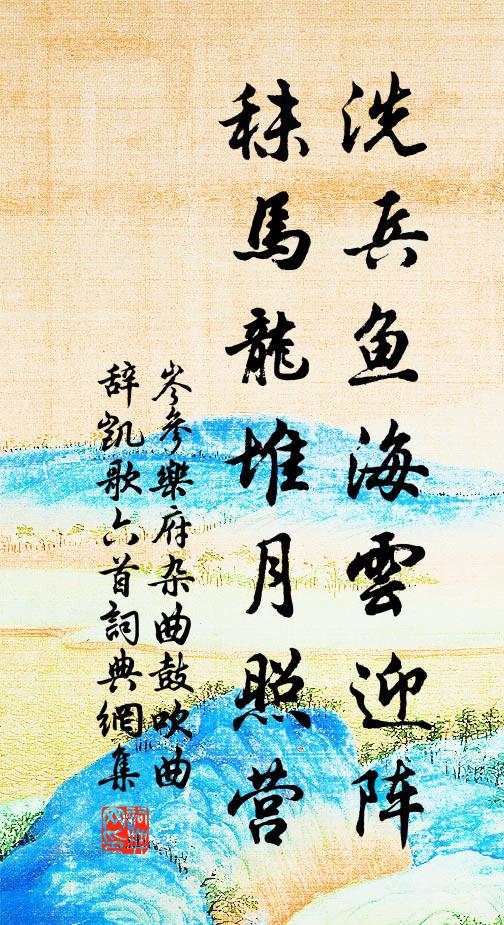 洗兵鱼海雲迎阵
秣馬龍堆月照营
岑參樂府杂曲鼓吹曲
辞凯歌六首詞典網集